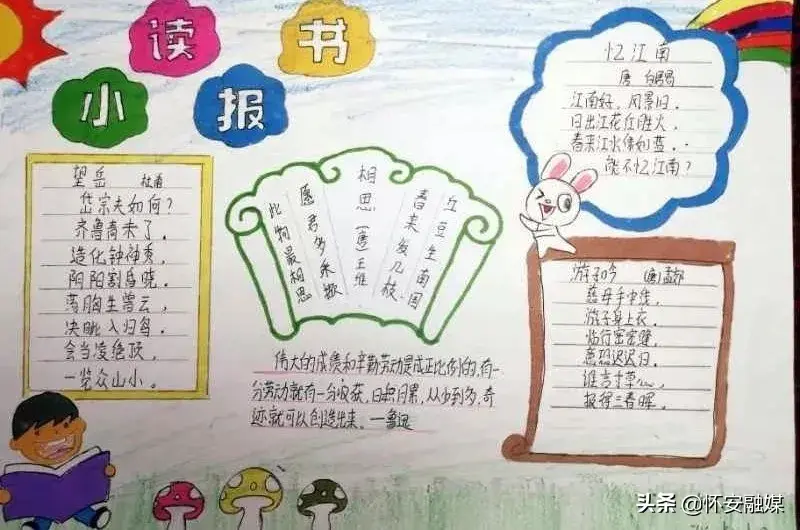 读书
小报
望岳 杜甫
岱宗夫如何?
齐鲁青未了。
造化钟神秀,
阴阳割昏晓。
荡胸生曾云,
决眦入归鸟。
会当凌绝顶,
一览众山小。
红豆生南国
春来发几枝.
相思(唐)王维
愿君多采撷
此物最相思
忆江南
唐 白居易
江南好,风景旧.
日出江花红胜火.
春来江水绿如蓝.
能不忆江南?
游子吟 (唐)孟郊
慈母手中线,
游子身上衣.
临行密密缝,
意恐迟迟归.
谁言寸草心,
报得三春晖.
伟大的成绩和辛勤劳动是成正比例的,有一
分劳动就有一分收获,日积月累,从少到多,奇
迹就可以创造出来. —鲁迅
头条 @怀安融媒